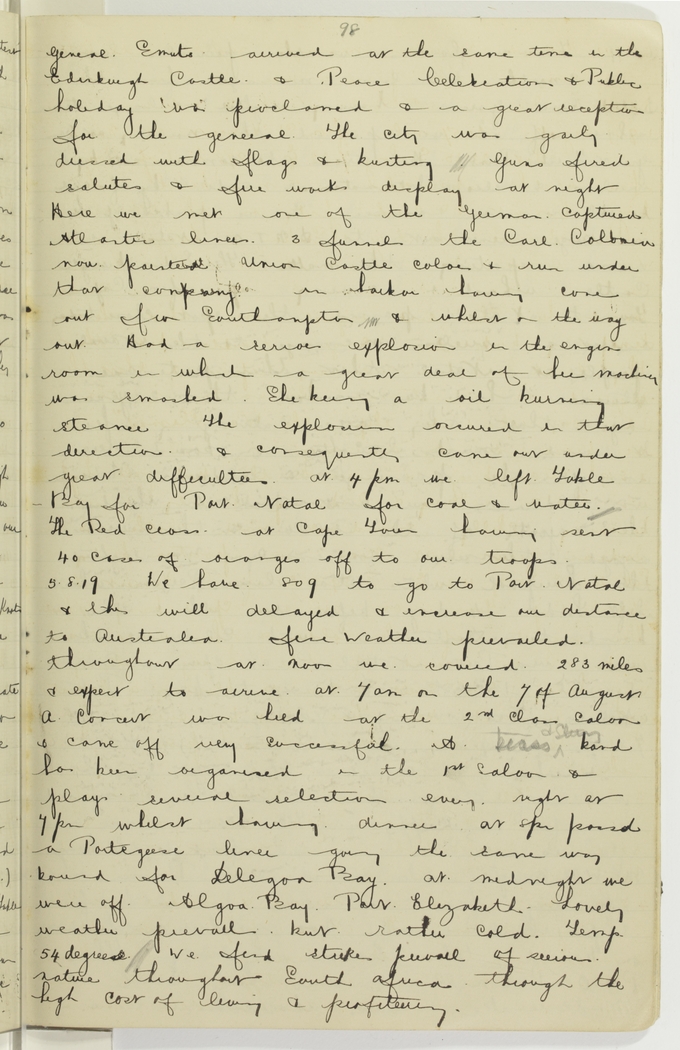 98
General. Smuts. arrived at the same time in the
Edinburgh Castle. & Peace Celebration & Public
holiday was proclaimed & a great reception
for the general. The city was gaily
dressed with flags & bunting Guns fired
salutes & fire works display at night
Here we met one of the German. Captured
Atlantic liners. 3 funnels the Carl.
now. painted Union Castle color & run under
that company in harbor having come
out from Southampton & whilst on the way
out. Had a serious explosion in the engine
room in which a great deal of her machinery
was smashed. She being a oil burning
steamer The explosion occured in that
direction. & consequently came out under
great difficulties. at 4 pm we left Table
Bay for Port. Natal for coal & water.
The Red Cross. at Cape Town having sent
40 cases of oranges off to our troops.
5.8.19 We have. 809 to go to Port. Natal
& this will delayed & increase our distance
to Australia. fine weather prevailed.
throughout at noon we. covered. 283 miles
& expect to arrive. at 7 am on the 7 of August
A Concert was held at the 2nd Class Saloon
& came off very successful. A. & String band
has been organised in the 1st Saloon &
plays several selection every. night at
7 pm whilst having. dinner. at 5pm passed
a Portegeese liner going the same way
bound for Delegoa Bay. at midnight we
were off Algoa. Bay. Port. Elizabeth. Lovely
weather prevail but rather cold. Temp.
54 degrees We find strikes prevail of serious.
nature throughout South Africa. through the
high cost of living & profiteering.